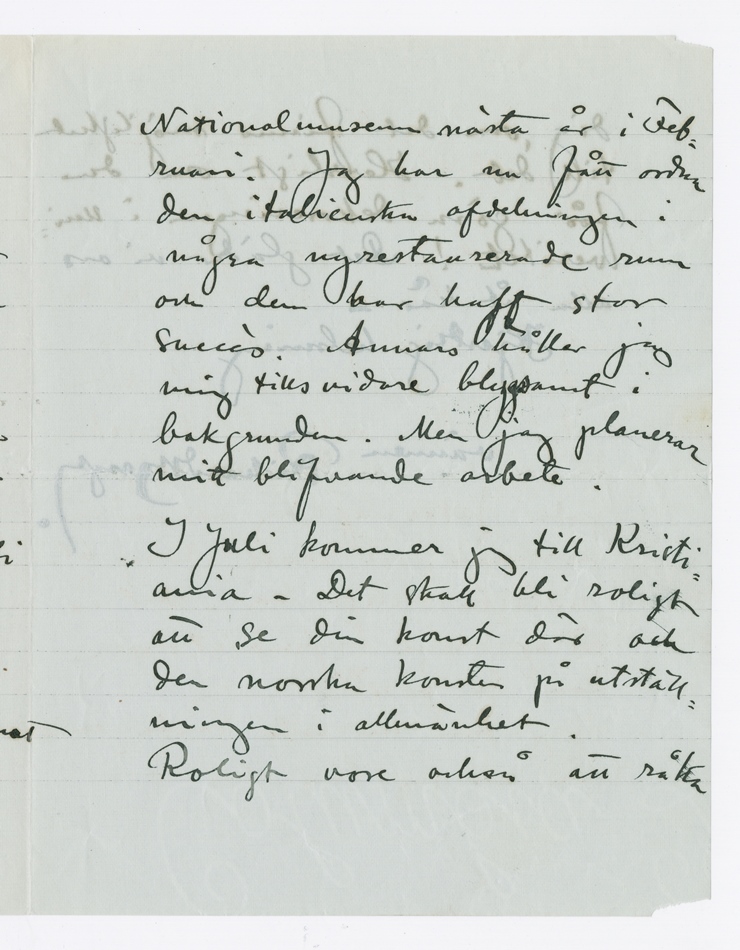 Nationalmuseum nästa år i Feb-
ruari. Jag har nu fått ordna
den italienska afdelningen i
några nyrestaurerade rum
och den har haft stor
succès. Annars håller jag
mig tillsvidare blygsamt i
bakgrunden. Men jag planerar
mitt blifvande arbete.
I Juli kommer jag till Kristi-
ania – Det skall bli roligt
att se din konst där och
den norska konsten på utställ-
ningen i allmänhet.
Roligt vore också att råka